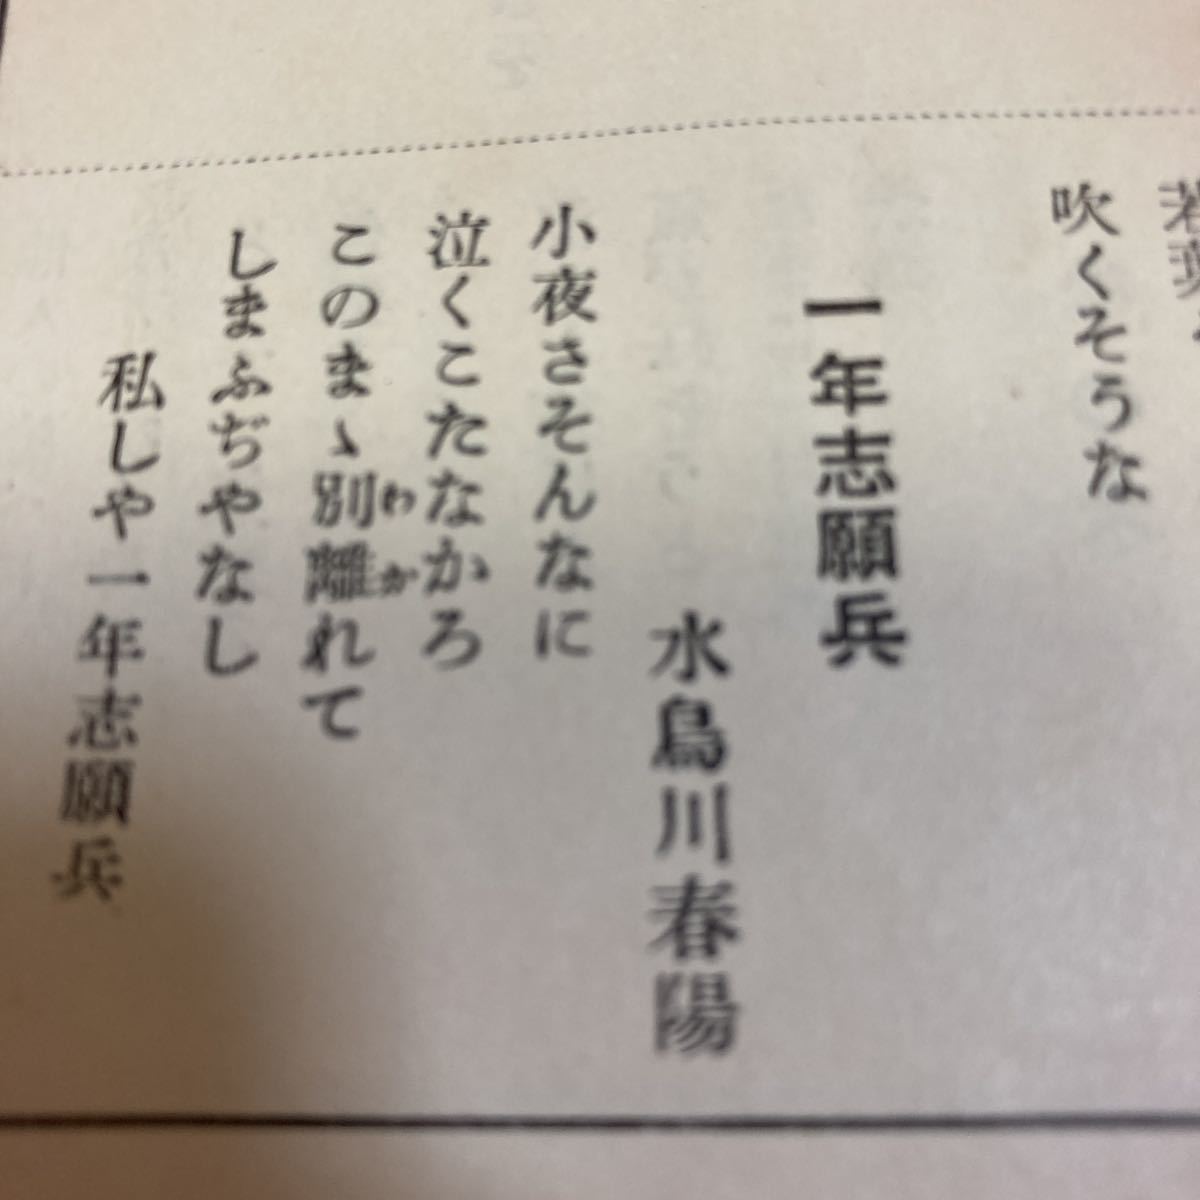 若葉
吹くそうな
一年志願兵
水鳥川春陽
小夜さそんなに
泣くこたなかろ
このまゝ別離れて
わか
しまふぢやなし
私しや一年志願兵